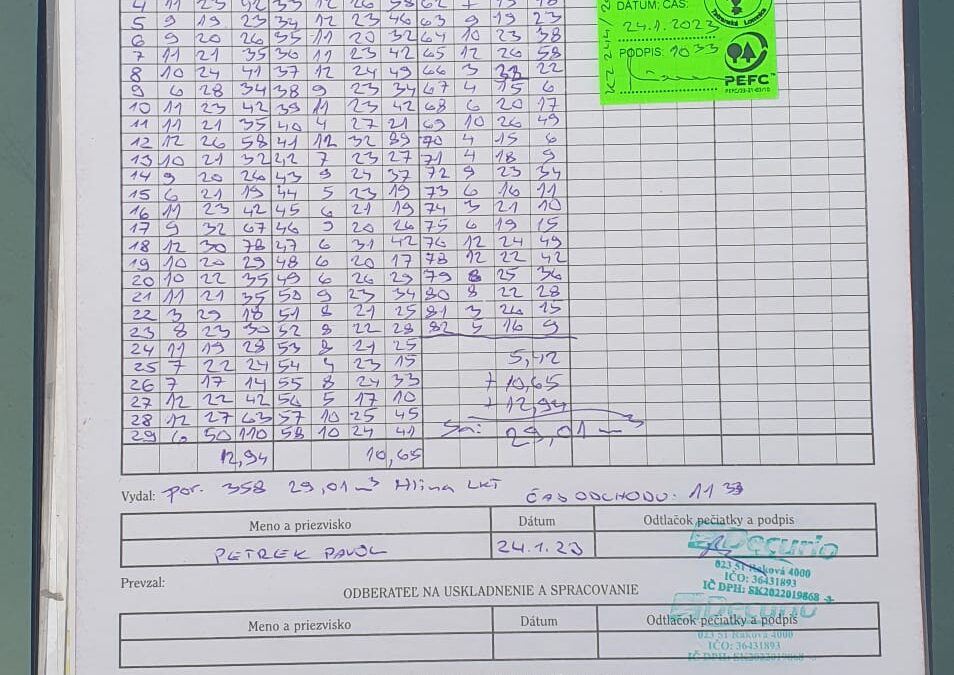 DÁTUM, ČAS:
24.1.2023
PODPIS: 10 33
PEFC
5 9 19 23 34 12 23 46 63 9 19 23
6 9 20 26 35 11 20 32 64 10 23 38
7 11 21 35 36 11 23 42 65 12 26 58
8 10 24 41 37 12 24 49 66 3 32 22
9 6 28 34 38 9 23 34 67 4 15 6
10 11 23 42 39 11 23 42 68 6 20 17
11 11 21 35 40 4 27 21 69 10 26 49
12 12 26 58 41 12 32 89 70 4 15 6
13 10 21 32 42 7 23 27 71 4 18 9
14 9 20 26 43 9 24 37 72 9 23 34
15 6 21 19 44 5 23 19 73 6 16 11
16 11 23 42 45 6 21 19 74 3 21 10
17 9 32 67 46 9 20 26 75 6 19 15
18 12 30 78 47 6 31 42 76 12 24 49
19 10 20 29 48 6 20 17 78 12 22 42
20 10 22 35 49 6 26 29 79 8 25 36
21 11 21 35 50 9 23 34 80 8 22 28
22 3 29 18 51 8 21 25 81 3 26 15
23 8 23 30 52 8 22 28 82 5 16 9
24 11 19 28 53 8 21 25
25 7 22 24 54 4 23 15 5,42
26 7 17 14 55 8 24 33 + 10,65
27 12 22 42 56 5 17 10 + 12,94
28 12 27 63 57 10 25 45
29 6 50 110 58 10 24 41 Sa: 29,01 m3
12,94 10,65
Vydal: por. 358 29,01 m3 Hlina LKT ČAS ODCHODU: 11 39
Meno a priezvisko Dátum Odtlačok pečiatky a podpis
PETREK PAVOL 24.1.23
Decurio
023 51 Raková 4000
IČO: 36431893
IČ DPH: SK2022019868
Prevzal:
ODBERATEĽ NA USKLADNENIE A SPRACOVANIE
Meno a priezvisko Dátum Odtlačok pečiatky a podpis
Decurio
023 51 Raková 4000
IČO: 36431893
IČ DPH: SK2022019868